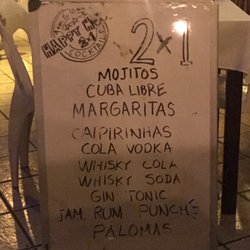 HAPPY
2x1
COCKTAILS
2x1
MOJITOS
CUBA LIBRE
MARGARITAS
CAIPIRINHAS
COLA VODKA
WHISKY COLA
WHISKY SODA
GIN TONIC
JAM RUM PUNCH
PALOMAS